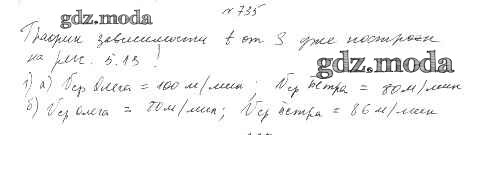 №735
gdz.moda
График зависимости t от S уже построен
на рис. 5.13!
gdz.moda
1) а) Vср Олега = 100 м/мин; Vср Петра = 80 м/мин
б) Vср Олега = 80 м/мин; Vср Петра = 86 м/мин